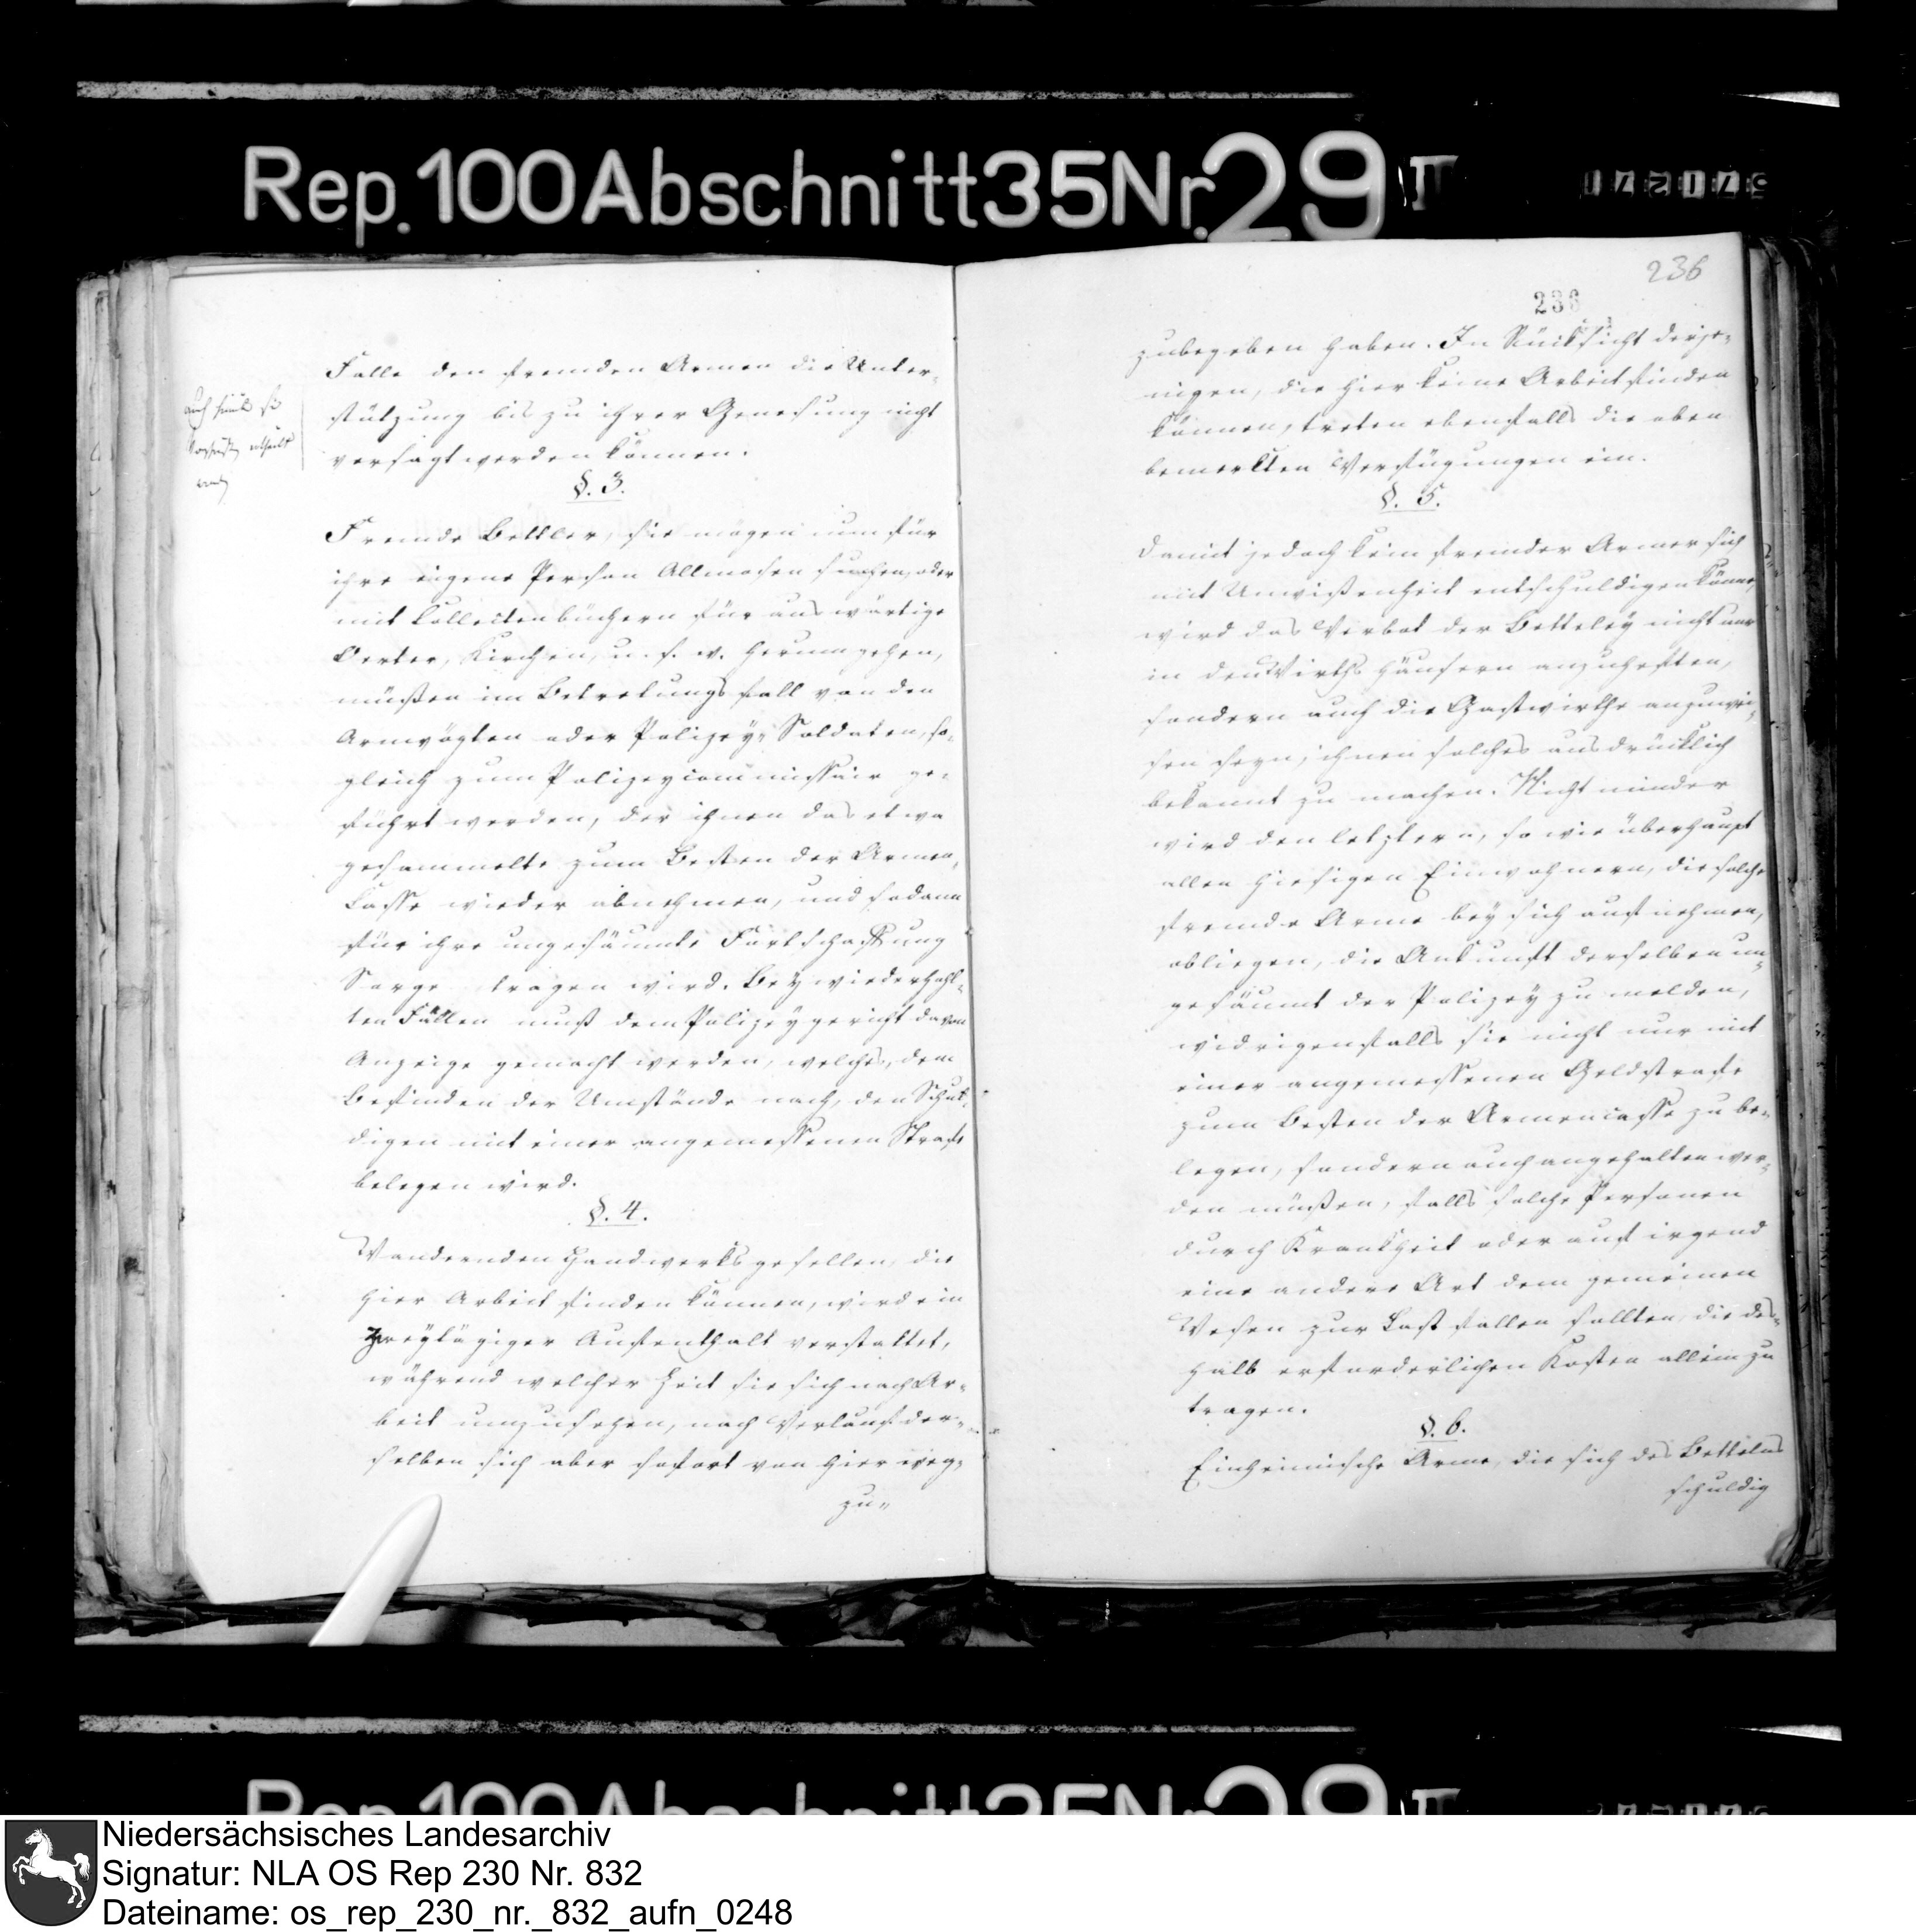 Rep. 100 Abschnitt 35 Nr. 29 II
Falle den fremden Armen die Unter-
stützung bis zu ihrer Genesung nicht
versagt werden können.
§. 3.
Fremde Bettler, sie mögen nun für
ihre eigene Person Allmosen suchen, oder
mit Collectenbüchern für auswärtige
Oerter, Kirchen, u. s. w. herumgehen,
müßen im Betretungsfall von den
Armvögten oder Polizey-Soldaten, so-
gleich zum Polizeycommissair ge-
führt werden, der ihnen das etwa
gesammelte zum Besten der Armen-
Casse wieder abnehmen, und sodann
für ihre ungesäumte Fortschaffung
Sorge tragen wird. Bey wiederhohl-
ten Fällen muß dem Polizeygericht davon
Anzeige gemacht werden, welches, dem
Befinden der Umstände nach, den Schul-
digen mit einer angemessenen Strafe
belegen wird.
§. 4.
Wandernden Handwerksgesellen, die
hier Arbeit finden können, wird ein
zweytägiger Aufenthalt verstattet,
während welcher Zeit sie sich nach Ar-
beit umzusehen, nach Verlauf der-
selben sich aber sofort von hier weg-
zu-
236
236
zubegeben haben. In Rücksicht derje-
nigen, die hier keine Arbeit finden
können, treten ebenfalls die oben
bemerkten Verfügungen ein.
§. 5.
Damit jedoch kein fremder Armer sich
mit Unwißenheit entschuldigen könne,
wird das Verbot der Betteley nicht nur
in den Wirthshäusern anzuheften,
sondern auch die Gastwirthe anzuwei-
sen seyn, ihnen solches ausdrücklich
bekannt zu machen. Nicht minder
wird den letztern, so wie überhaupt
allen hiesigen Einwohnern, die solche
fremde Arme bey sich aufnehmen,
obliegen, die Ankunft derselben un-
gesäumt der Polizey zu melden,
widrigenfalls sie nicht nur mit
einer angemessenen Geldstrafe
zum Besten der Armencasse zu be-
legen, sondern auch angehalten wer-
den müßen, falls solche Personen
durch Krankheit oder auf irgend
eine andere Art dem gemeinen
Wesen zur Last fallen sollten, die des-
halb erforderlichen Kosten allein zu
tragen.
§. 6.
Einheimische Arme, die sich des Bettelns
schuldig
Niedersächsisches Landesarchiv
Signatur: NLA OS Rep 230 Nr. 832
Dateiname: os_rep_230_nr._832_aufn_0248